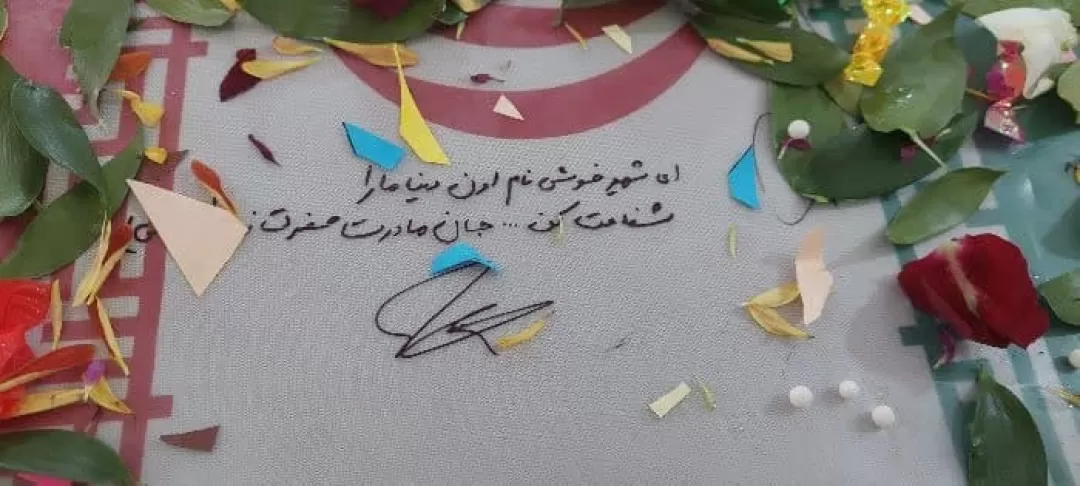 ای شهید خوش نام اون دنیا ما را
شفاعت کن ... جان مادرت حضرت